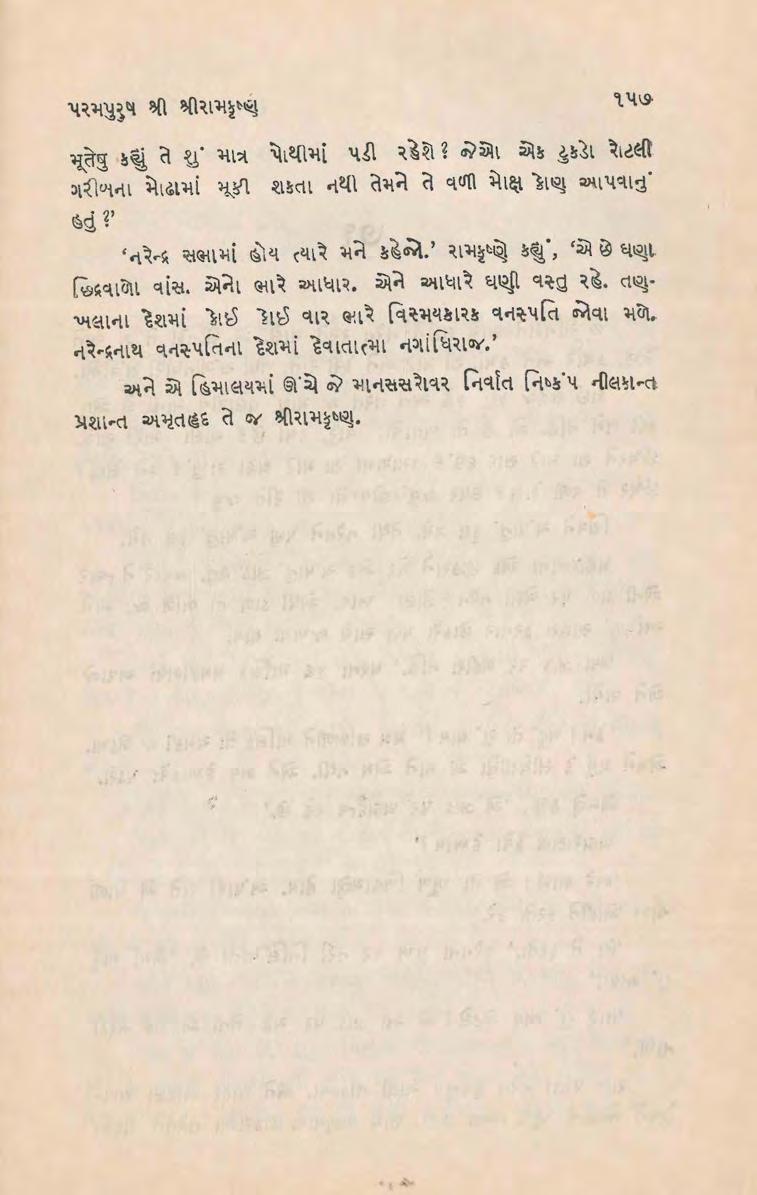 પરમપુરુષ શ્રી શ્રીરામકૃષ્ણ ૧૫૭
મૂતેષુ કહ્યું તે શું માત્ર પોથીમાં પડી રહેશે ? જેઓ એક ટુકડો રોટલી
ગરીબના મોઢામાં મૂકી શકતા નથી તેમને તે વળી મોક્ષ કોણ આપવાનું
હતું ?’
‘નરેન્દ્ર સભામાં હોય ત્યારે મને કહેજો.’ રામકૃષ્ણે કહ્યું, ‘એ છે ઘણા
છિદ્રવાળો વાંસ. એનો ભારે આધાર. એને આધારે ઘણી વસ્તુ રહે. તણ-
ખલાના દેશમાં કોઈ કોઈ વાર ભારે વિસ્મયકારક વનસ્પતિ જોવા મળે.
નરેન્દ્રનાથ વનસ્પતિના દેશમાં દેવાતાત્મા નગાંધિરાજ.’
અને એ હિમાલયમાં ઊંચે જે માનસસરોવર નિર્વાત નિષ્કંપ નીલકાન્ત
પ્રશાન્ત અમૃતહ્રદ તે જ શ્રીરામકૃષ્ણ.